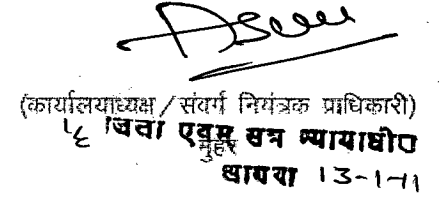 (कार्यालयाध्यक्ष/संवर्ग नियंत्रक प्राधिकारी)
जिला एवम सत्र न्यायाधीश
मुहर
13-1-11